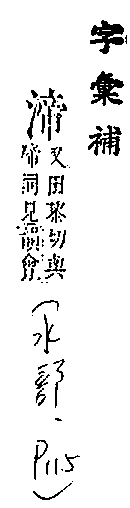 字彙補
渧
又田黎切與
啼同見韻會
(水部、
P115)